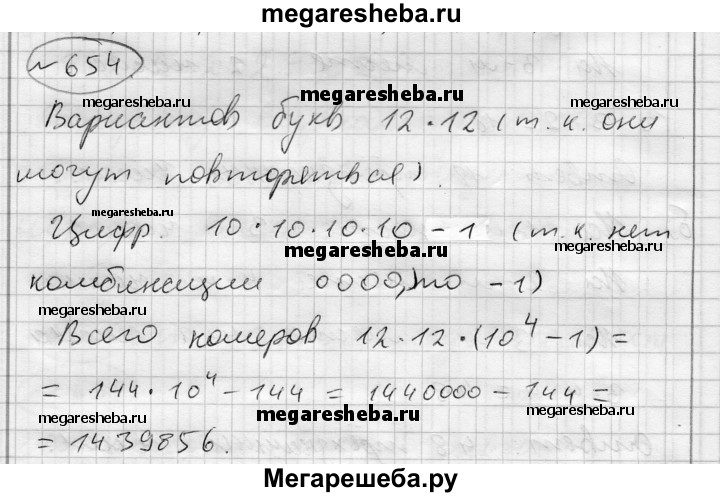 megaresheba.ru
№ 654
megaresheba.ru megaresheba.ru megaresheba.ru
Вариантов букв 12 · 12 (т. к. они
могут повторяться).
megaresheba.ru
Цифр. 10 · 10 · 10 · 10 - 1 (т. к. нет
megaresheba.ru megaresheba.ru
комбинации 0000, то - 1)
Всего номеров 12 · 12 · (10⁴ - 1) =
megaresheba.ru megaresheba.ru
= 144 · 10⁴ - 144 = 1440000 - 144 =
megaresheba.ru megaresheba.ru megaresheba.ru
= 1439856.
Мегарешеба.ру